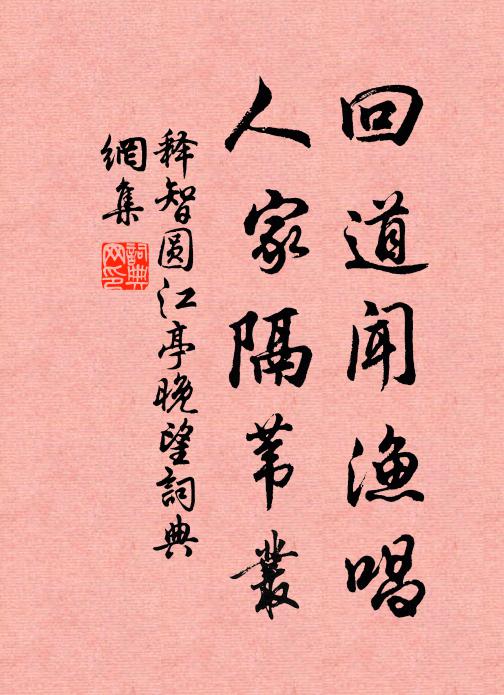 回道闻渔唱
人家隔苇丛
释智圆江亭晚望词典
網集
詞典
网印